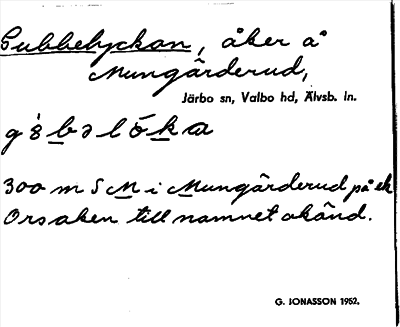 Gubbelyckan, åker å
Mungårderud,
Järbo sn, Valbo hd, Älvsb. ln.
300 m S M i Mungårderud på ek
Orsaken till namnet okänd.
G. JONASSON 1952.